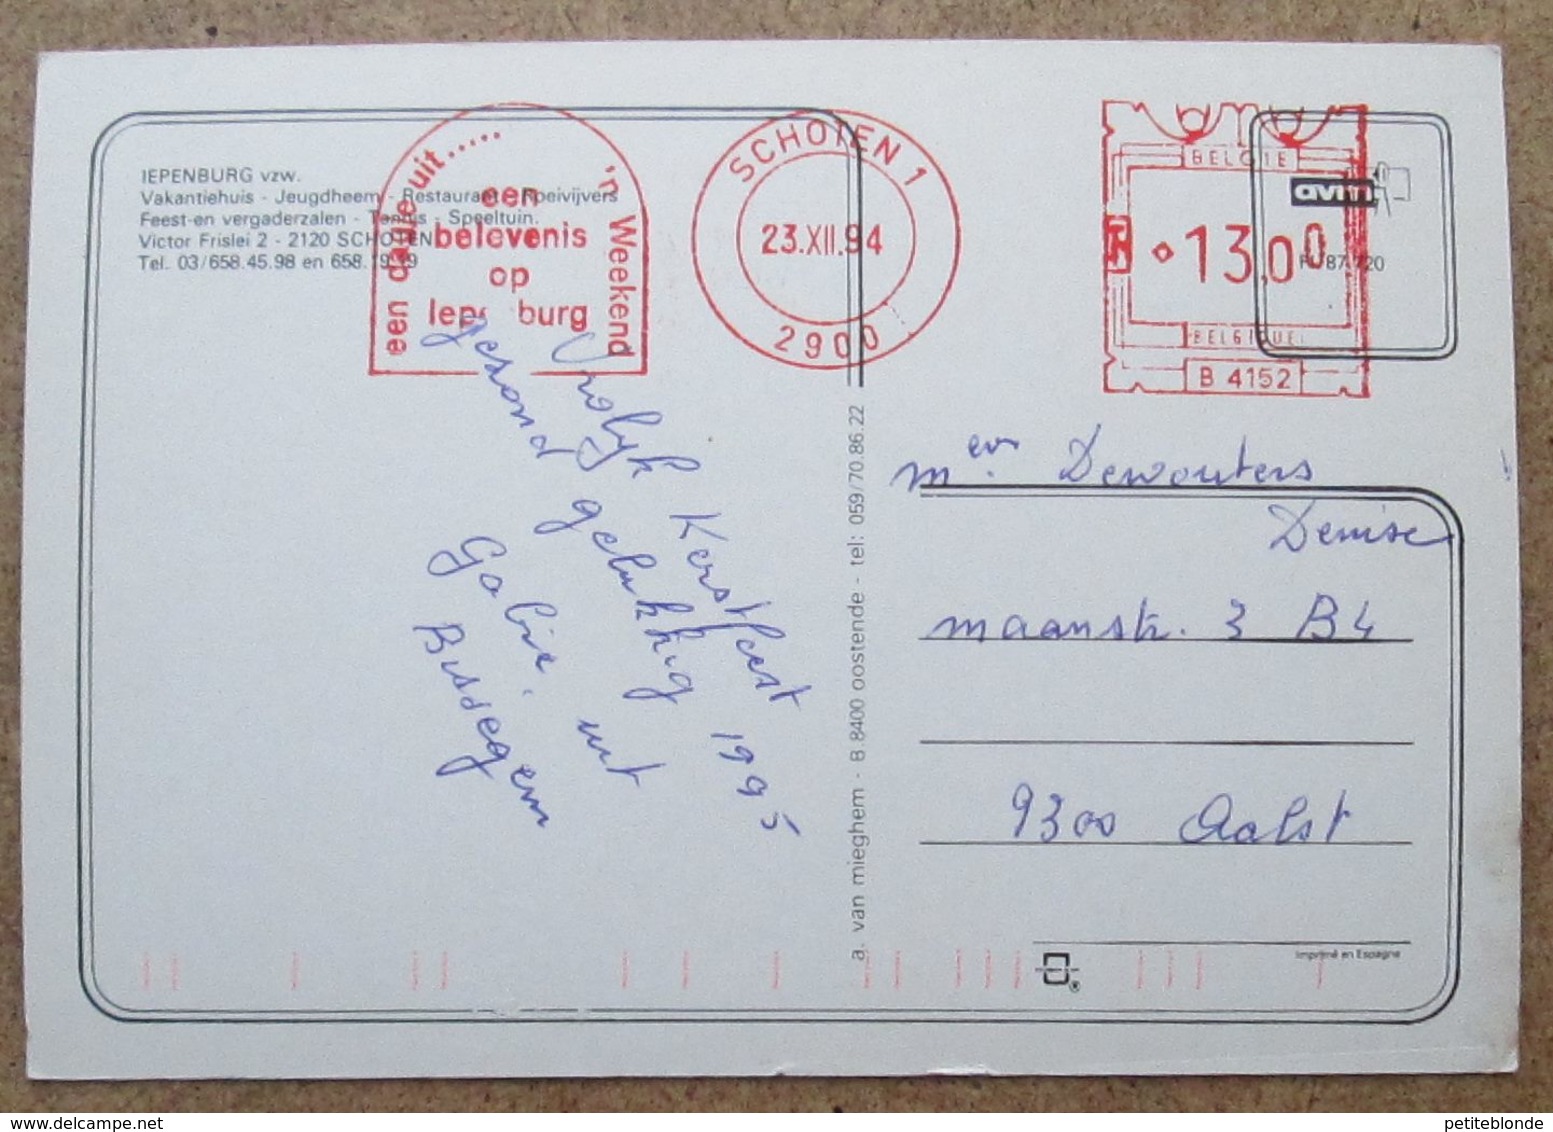 IEPENBURG vzw.
Vakantiehuis - Jeugdheem - Restaurant - Roeivijvers
Feest-en vergaderzalen - Tennis - Speeltuin.
Victor Frislei 2 - 2120 SCHOTEN
Tel. 03/658.45.98 en 658.19.19
een dagje uit.....
'n Weekend
een
belevenis
op
Iepenburg
SCHOTEN 1
23.XII.94
2900
BELGIE
13,00
BELGIQUE
B 4152
avm
RU 87.720
Vrolijk Kerstfeest
gezond gelukkig 1995
Gabie. uit
Bissegem
a. van mieghem - B.8400 oostende - tel: 059/70.86.22
mevr. Dewouters
Denise
maanstr. 3 B4
9300 Aalst
Imprimé en Espagne
petiteblonde